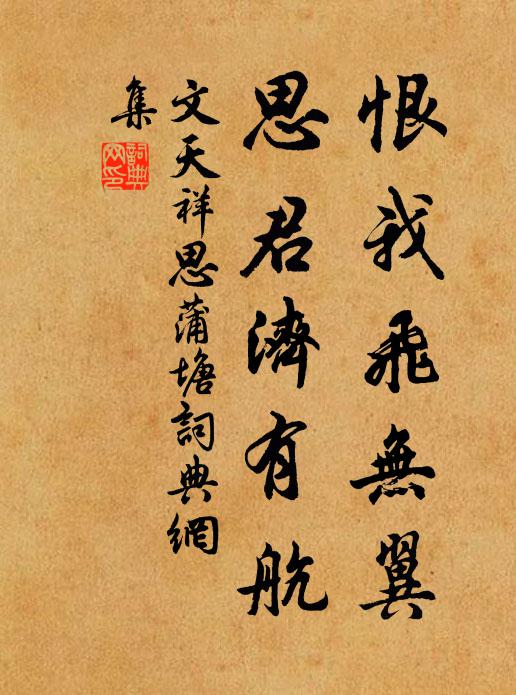 恨我飛無翼
思君濟有航
文天祥思蒲塘詞典網
集
詞典
网印